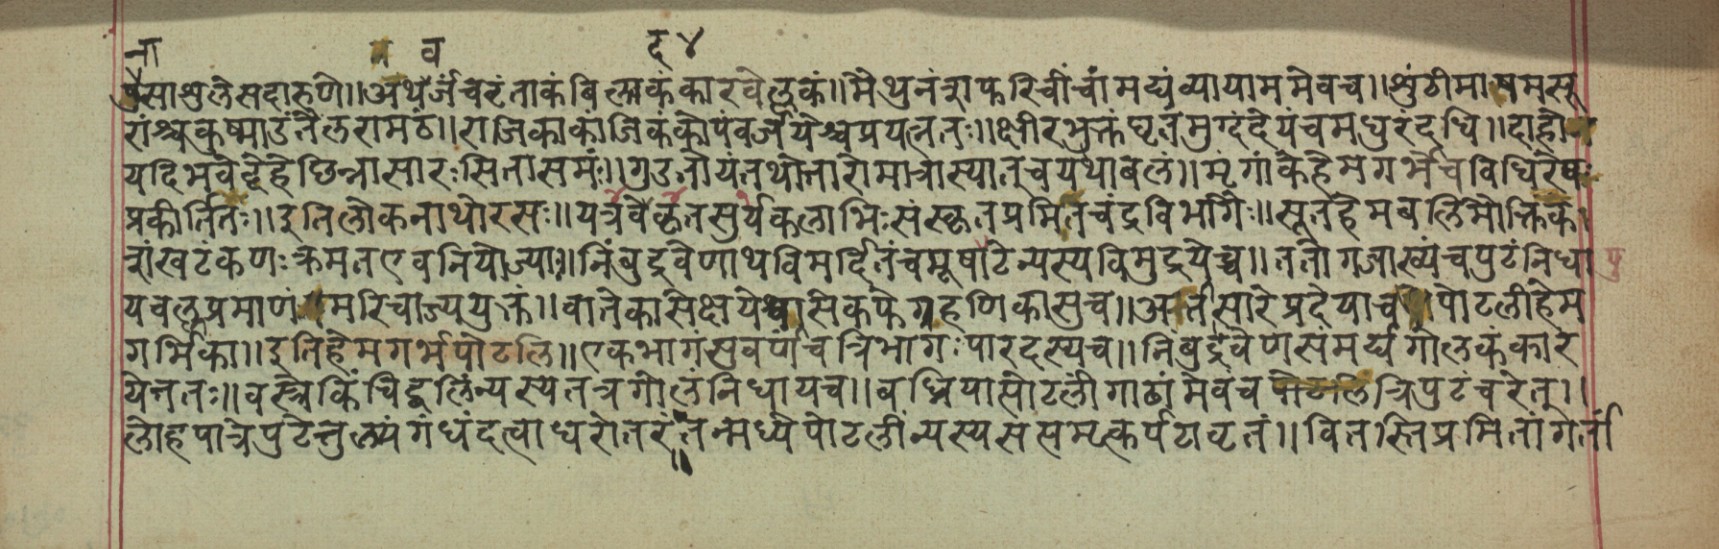 ना न व द ४
र्षसा शुले सदारुणे ॥ अथ वर्जं च वटं ताकं बिल्वाकं कारवेल्लकं ॥ मैथुनं त्राफरिचींचां मद्यं व्यायाममेव च ॥ शुंठी माषमसू
रांश्च कुष्माउं तैलरामठं ॥ राजिकाकांजिकं कोपं वर्जयेश्च प्रयत्नतः ॥ क्षीरभुक्तं घृतं मुग्दं देयं च मधुरं दधि ॥ दाहो
यदि भवेद्देहे छिन्नासारः सितासमंः ॥ गुउतोयं तथोनारी मात्रा स्यातु च यथाबलं ॥ मृगांके हेमगर्भे च विधिरेषः
प्रकीर्तितः ॥ इति लोकनाथो रसः ॥ यत्र वैकृत सुर्यकलाभिः संस्कृत प्रमितचंद्रविभागैः ॥ सूतहेमबलिमौक्तिक
त्रांखटंकणः क्रमत एव नियोज्याः ॥ निंबुद्रवेणाथ विमर्दितं च मूषांटे न्यस्य विमुद्रयेच्च ॥ ततो गजाख्यं च पुटं निधा
य वल्लप्रमाणं मरिचाज्ययुक्तं ॥ वाते कासे क्षये श्वासे कफे ग्रहणिकासु च ॥ अतीसारे प्रदेया च पोटली हेम
गर्भिका ॥ इति हेमगर्भपोटलि ॥ एकभागं सुवर्णं च त्रिभागः पारदस्य च ॥ निंबुद्रवेण संमर्घ गोलकं कार
येत्ततः ॥ वस्त्रे किंचिद्बलिं न्यस्य तत्र गोलं निधाय च ॥ बध्रियासोटलीं गाठां मेव च पोटलि त्रिपुटं चरेत् ॥
लोहपात्रे पुटे तुल्यं गंधं दत्वाधरोतरं तन्मध्ये पोटलीं न्यस्य ससमृत्कर्पटावृतं ॥ वितस्तिप्रमितां गर्तां